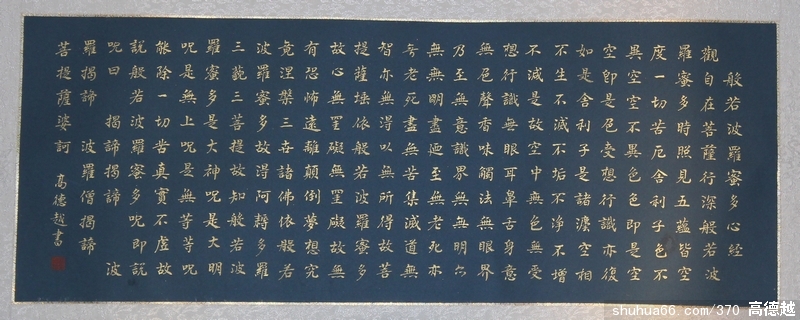 般若波羅蜜多心經
觀自在菩薩行深般若波
羅蜜多時照見五蘊皆空
度一切苦厄舍利子色不
異空空不異色色即是空
空即是色受想行識亦復
如是舍利子是諸灋空相
不生不滅不垢不淨不增
不減是故空中無色無受
想行識無眼耳鼻舌身意
無色聲香味觸法無眼界
乃至無意識界無無明亦
無無明盡迺至無老死亦
無老死盡無苦集滅道無
智亦無得以無所得故菩
提薩埵依般若波羅蜜多
故心無罣礙無罣礙故無
有恐怖遠離顛倒夢想究
竟涅槃三世諸佛依般若
波羅蜜多故得阿耨多羅
三藐三菩提故知般若波
羅蜜多是大神呪是大明
呪是無上呪是無等等呪
能除一切苦真實不虛故
說般若波羅蜜多呪即說
呪曰 揭諦揭諦 波
羅揭諦 波羅僧揭諦
菩提薩婆訶 高德越書
shuhua66.com/370 高德越